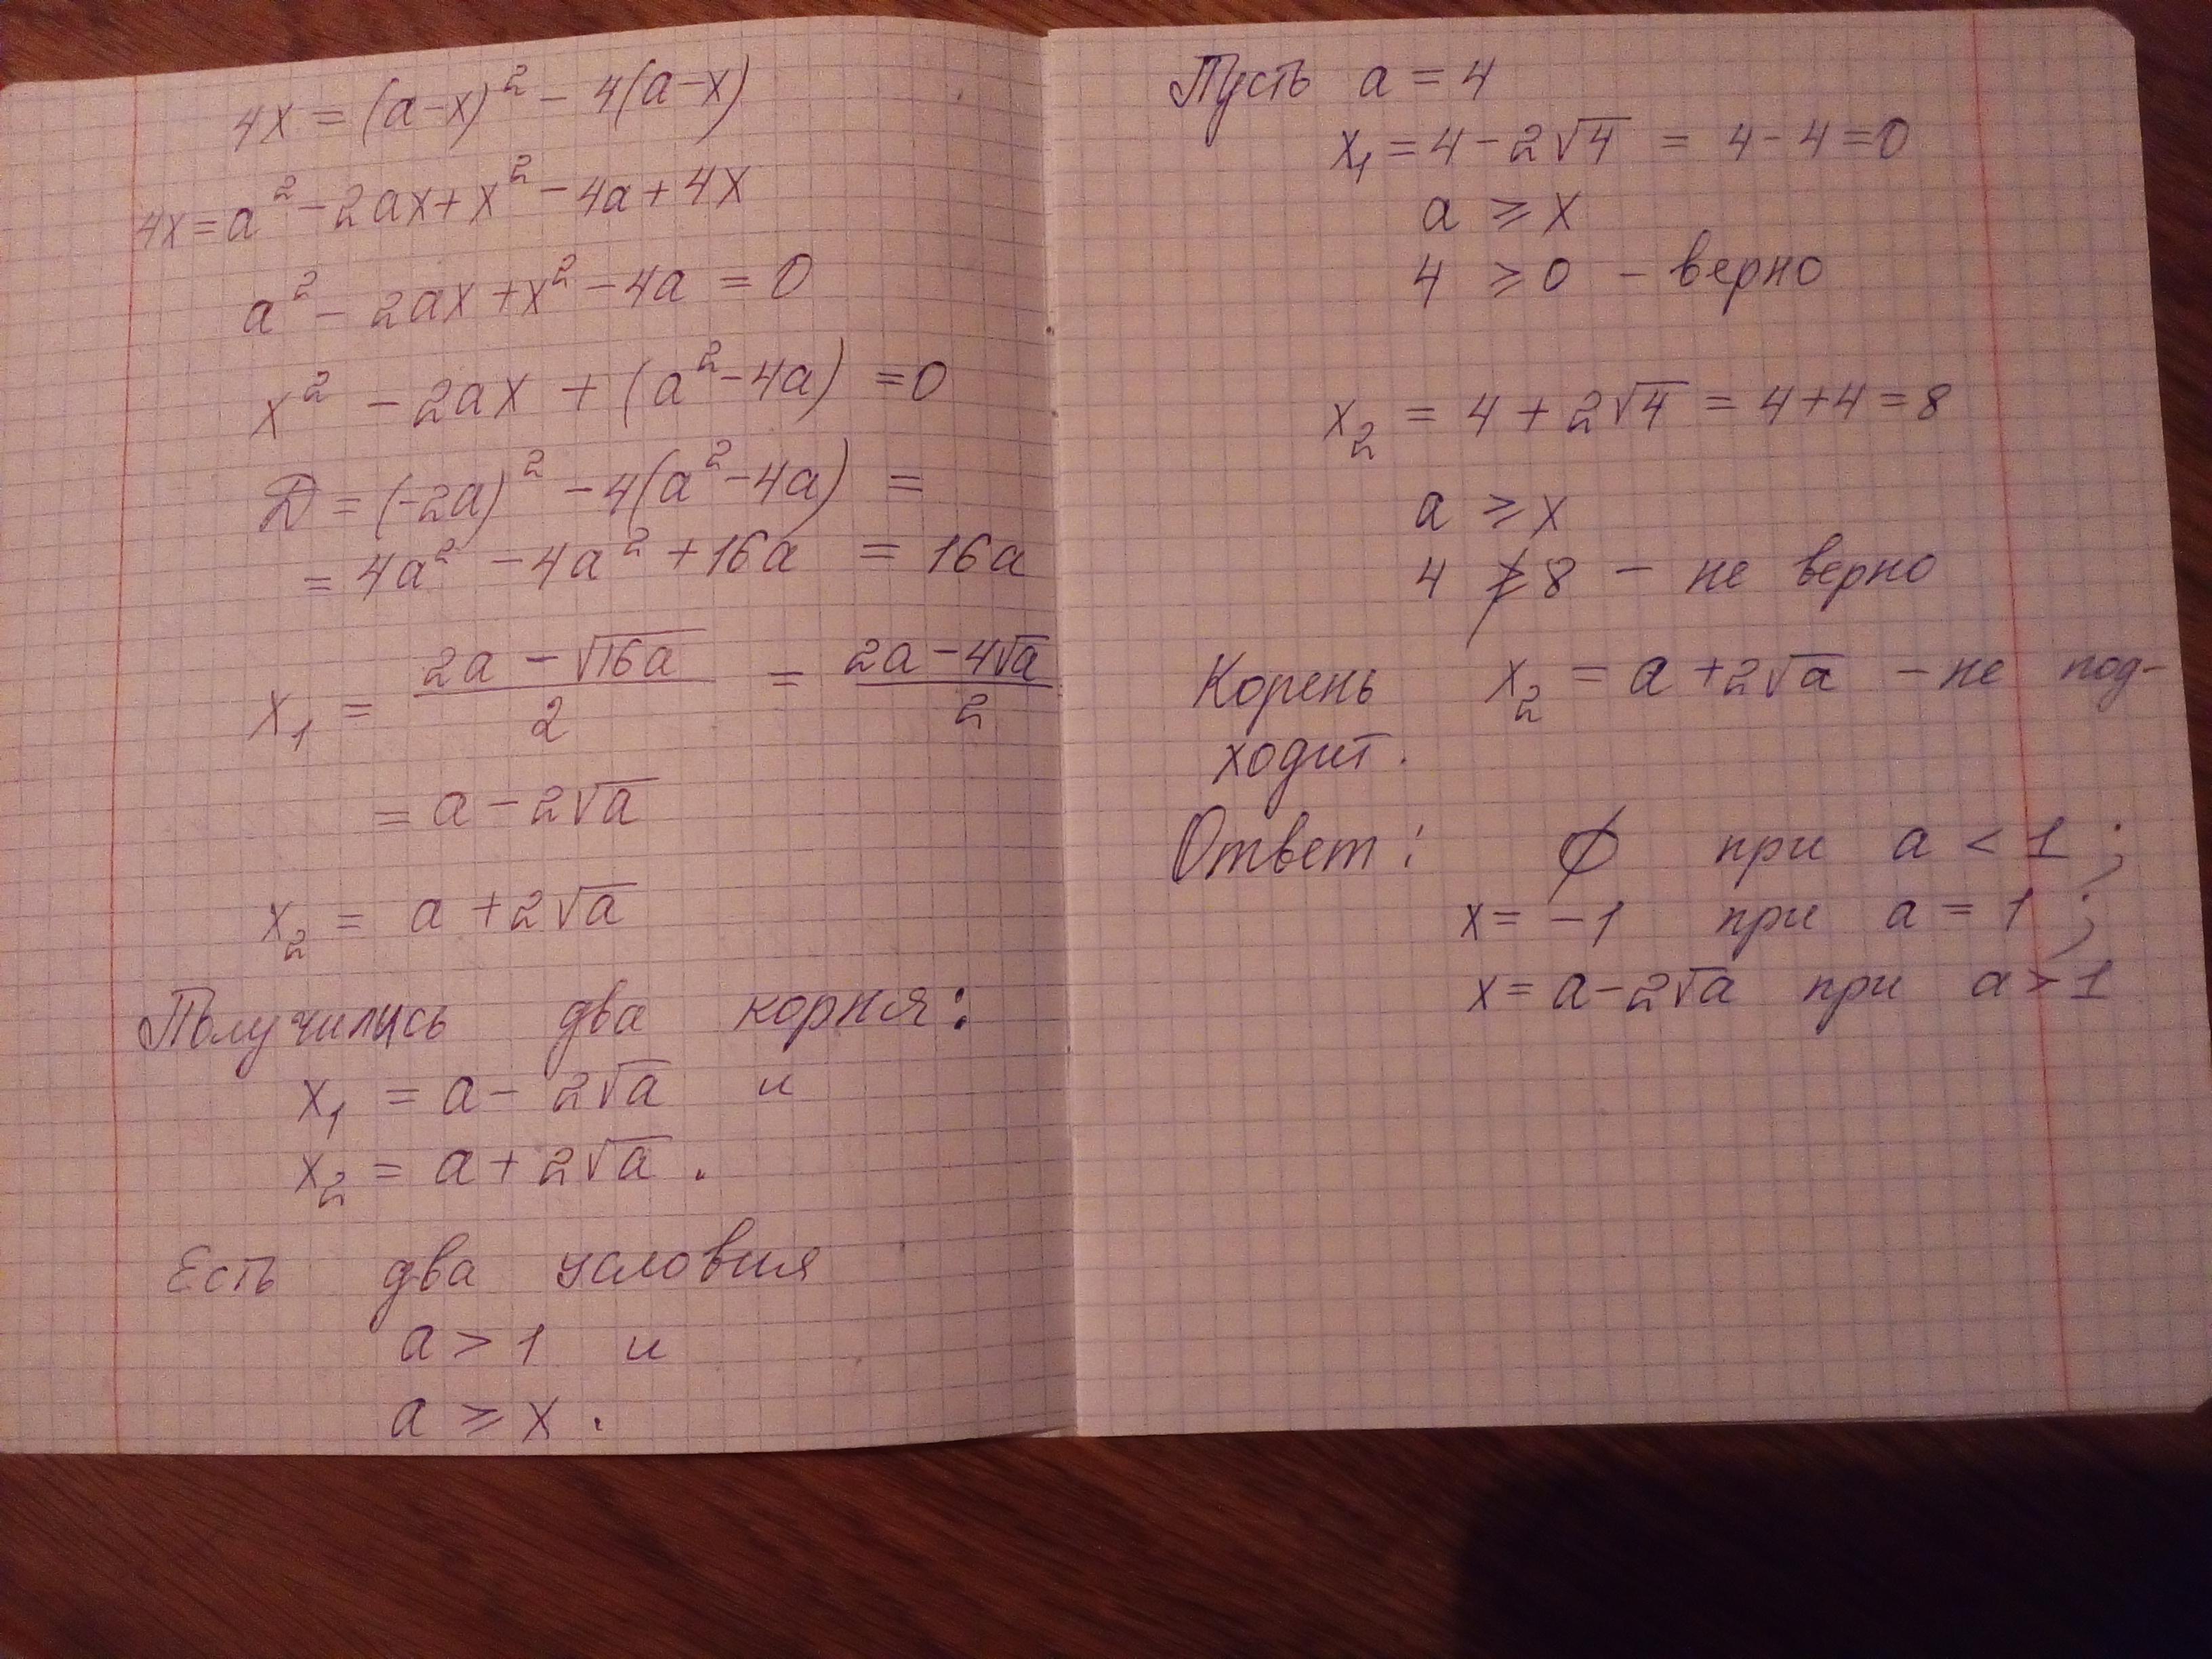 4x = (a-x)² - 4(a-x)
4x = a² - 2ax + x² - 4a + 4x
a² - 2ax + x² - 4a = 0
x² - 2ax + (a² - 4a) = 0
D = (-2a)² - 4(a² - 4a) =
= 4a² - 4a² + 16a = 16a
x₁ = (2a - √16a)/2 = (2a - 4√a)/2
= a - 2√a
x₂ = a + 2√a
Получились два корня:
x₁ = a - 2√a и
x₂ = a + 2√a .
Есть два условия
a > 1 и
a ⩾ x .
Пусть a = 4
x₁ = 4 - 2√4 = 4 - 4 = 0
a ⩾ x
4 ⩾ 0 - верно
x₂ = 4 + 2√4 = 4 + 4 = 8
a ⩾ x
4 ⩾̸ 8 - не верно
Корень x₂ = a + 2√a - не под-
ходит.
Ответ: ∅ при a < 1 ;
x = -1 при a = 1 ;
x = a - 2√a при a > 1